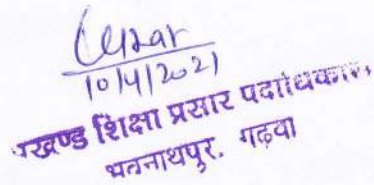 10/4/2021
प्रखण्ड शिक्षा प्रसार पदाधिकारी
भवनाथपुर. गढ़वा